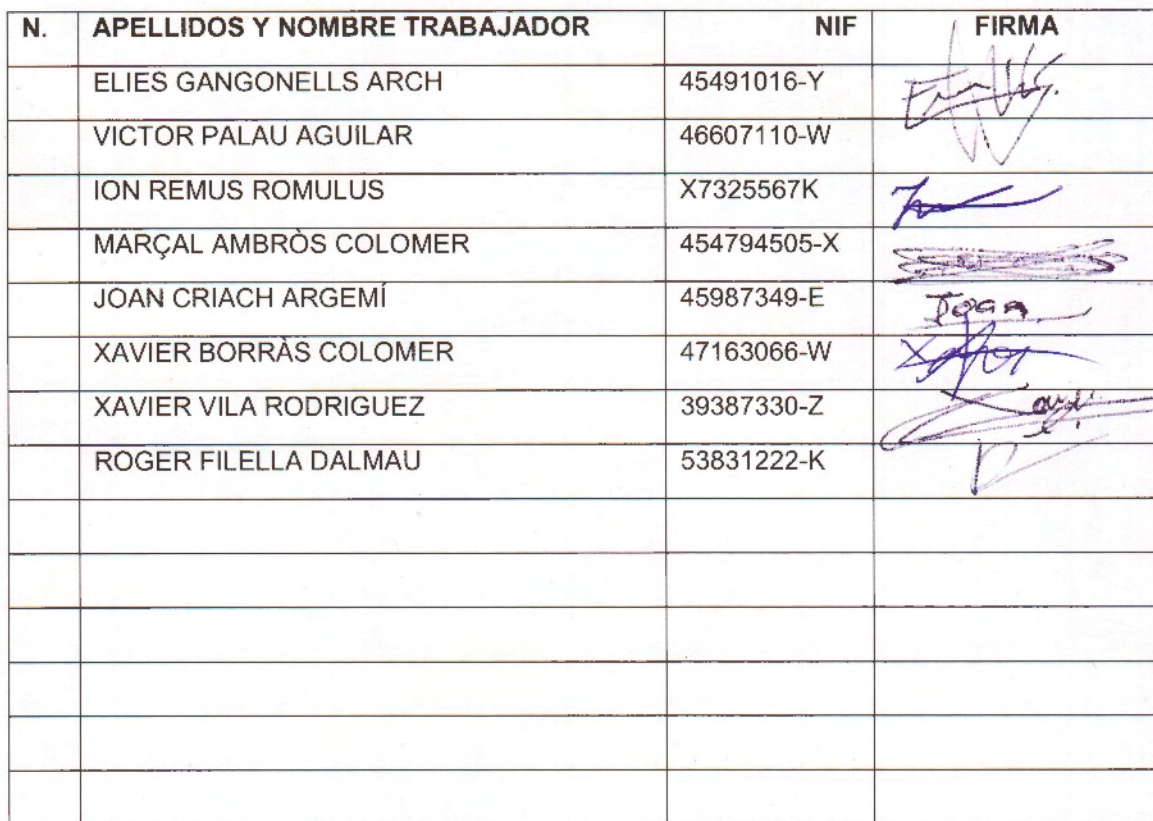 N. APELLIDOS Y NOMBRE TRABAJADOR NIF FIRMA
ELIES GANGONELLS ARCH 45491016-Y
VICTOR PALAU AGUILAR 46607110-W
ION REMUS ROMULUS X7325567K
MARÇAL AMBRÒS COLOMER 454794505-X
JOAN CRIACH ARGEMÍ 45987349-E Joan
XAVIER BORRÀS COLOMER 47163066-W
XAVIER VILA RODRIGUEZ 39387330-Z
ROGER FILELLA DALMAU 53831222-K